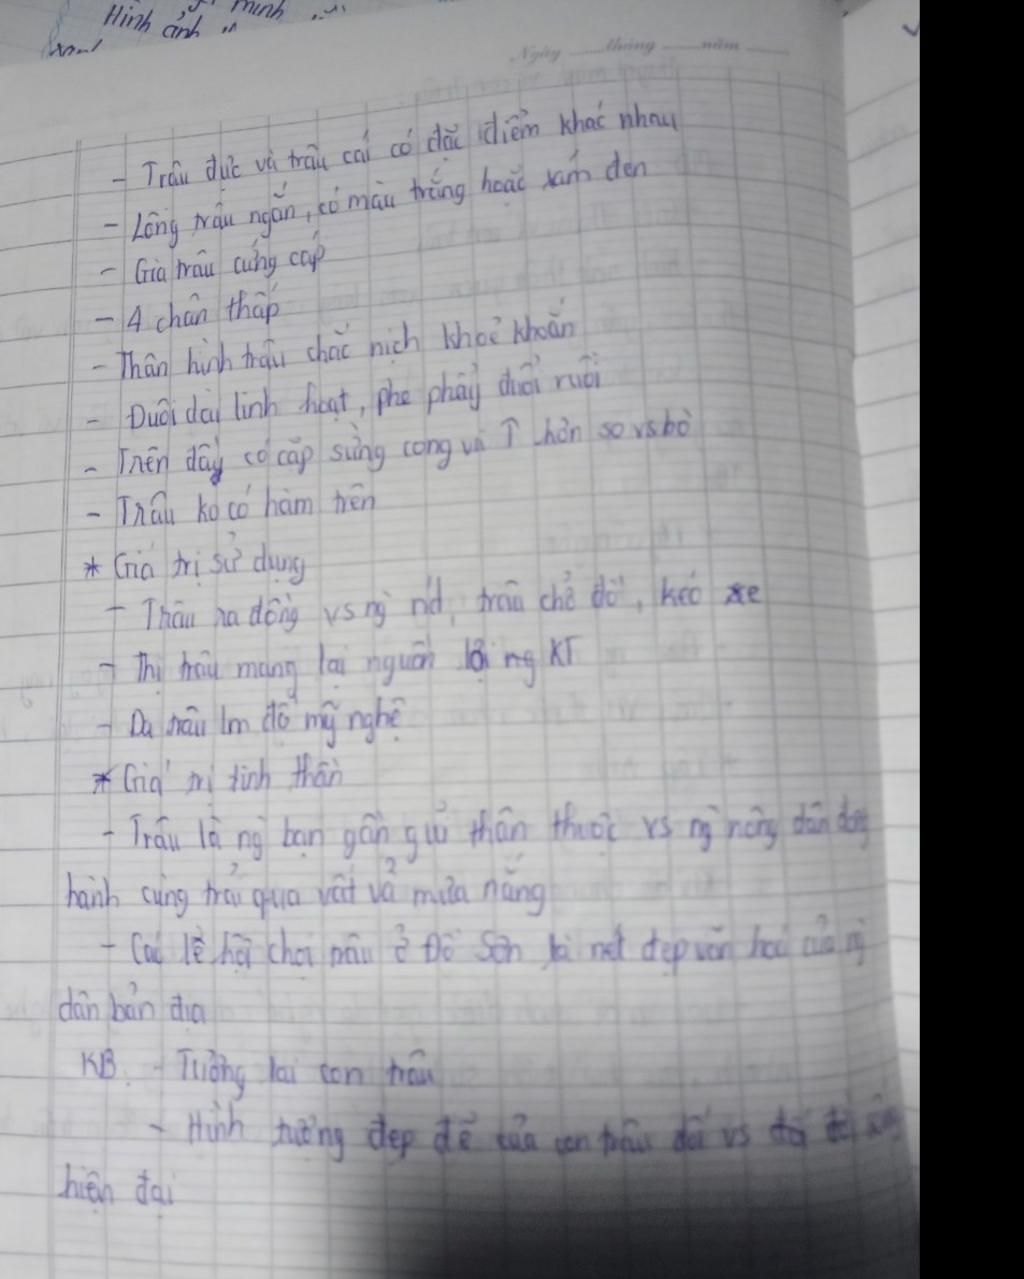 Hình ảnh
Ngày tháng năm
- Trâu đực và trâu cái có đặc điểm khác nhau
- Lông trâu ngắn, có màu trắng hoặc xám đen
- Gia trâu cứng cáp
- 4 chân thấp
- Thân hình trâu chắc nịch khoẻ khoắn
- Đuôi dài linh hoạt, phe phẩy đuổi ruồi
- Trên đây có cặp sừng cong và T hơn so vs bò
- Trâu ko có hàm trên
* Giá trị sử dụng
- Thâu ra đồng vs ng nd, trâu chở đồ, kéo xe
- Thị trâu mang lại nguồn lợi ng KT
- Da trâu lm đồ mỹ nghệ
* Giá trị tinh thần
- Trâu là ng bạn gần gũi thân thuộc vs ng nông dân đồng
hành cùng trải qua vất vả mưa nắng
- Các lễ hội chọi trâu ở Đồ Sơn là nét đẹp văn hoá của ng
dân bản địa
KB. - Tương lai con trâu
- Hình tượng đẹp đẽ của con trâu đối vs
hiện đại